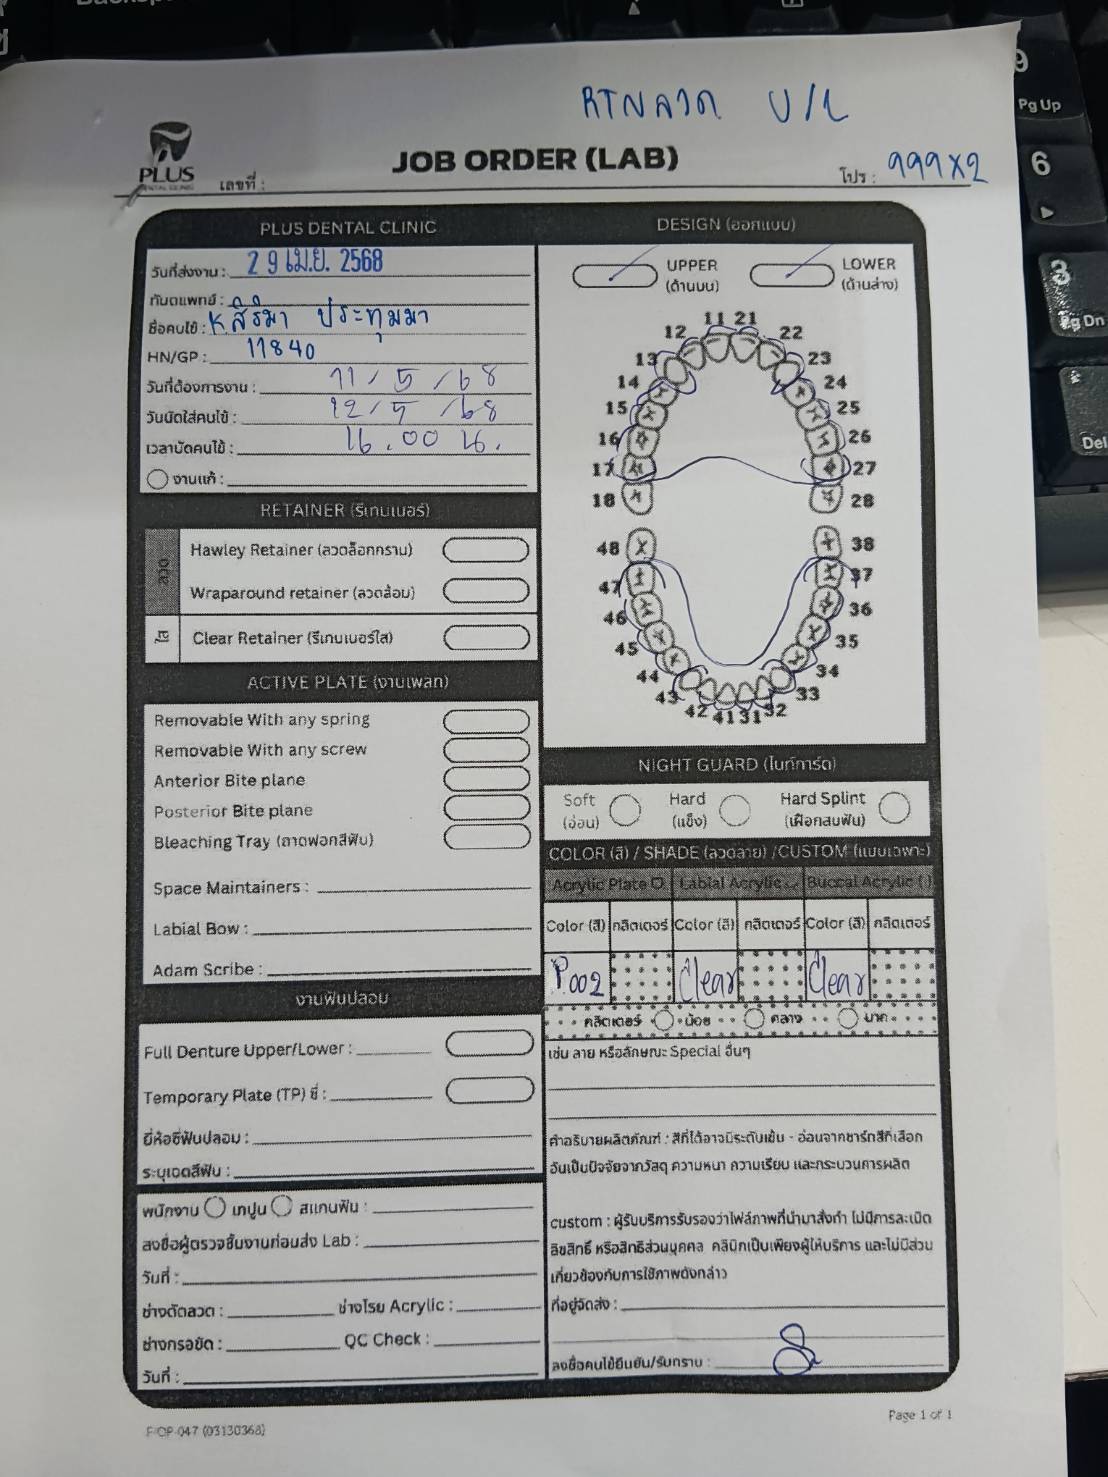 RTNลวด U/L
PLUS
DENTAL CLINIC
JOB ORDER (LAB)
เลขที่ :
โปร : 999x2
PLUS DENTAL CLINIC
วันที่ส่งงาน : 29 เม.ย. 2568
ทันตแพทย์ :
ชื่อคนไข้ : K.สิริมา ประทุมมา
HN/GP : 11840
วันที่ต้องการงาน : 11/5/68
วันนัดใส่คนไข้ : 12/5/68
เวลานัดคนไข้ : 16.00 น.
งานแก้ :
RETAINER (รีเทนเนอร์)
ลวด
Hawley Retainer (ลวดล็อกกราม)
Wraparound retainer (ลวดล้อม)
ใส
Clear Retainer (รีเทนเนอร์ใส)
ACTIVE PLATE (งานเพลท)
Removable With any spring
Removable With any screw
Anterior Bite plane
Posterior Bite plane
Bleaching Tray (ถาดฟอกสีฟัน)
Space Maintainers :
Labial Bow :
Adam Scribe :
งานฟันปลอม
Full Denture Upper/Lower :
Temporary Plate (TP) ซี่ :
ยี่ห้อซี่ฟันปลอม :
ระบุเฉดสีฟัน :
พนักงาน เทปูน สแกนฟัน :
ลงชื่อผู้ตรวจชิ้นงานก่อนส่ง Lab :
วันที่ :
ช่างดัดลวด : ช่างโรย Acrylic :
ช่างกรอขัด : QC Check :
วันที่ :
DESIGN (ออกแบบ)
UPPER
(ด้านบน)
LOWER
(ด้านล่าง)
11 21
12 22
13 23
14 24
15 25
16 26
17 27
18 28
48 38
47 37
46 36
45 35
44 34
43 33
42 41 31 32
NIGHT GUARD (ไนท์การ์ด)
Soft
(อ่อน)
Hard
(แข็ง)
Hard Splint
(เฝือกสบฟัน)
COLOR (สี) / SHADE (ลวดลาย) /CUSTOM (แบบเฉพาะ)
Acrylic Plate Labial Acrylic Buccal Acrylic ( )
Color (สี) กลิตเตอร์ Color (สี) กลิตเตอร์ Color (สี) กลิตเตอร์
P002 Clear Clear
กลิตเตอร์ น้อย กลาง มาก
เช่น ลาย หรือลักษณะ Special อื่นๆ
คำอธิบายผลิตภัณฑ์ : สีที่ได้อาจมีระดับเข้ม - อ่อนจากชาร์ทสีที่เลือก
อันเป็นปัจจัยจากวัสดุ ความหนา ความเรียบ และกระบวนการผลิต
custom : ผู้รับบริการรับรองว่าไฟล์ภาพที่นำมาสั่งทำ ไม่มีการละเมิด
ลิขสิทธิ์ หรือสิทธิส่วนบุคคล คลินิกเป็นเพียงผู้ให้บริการ และไม่มีส่วน
เกี่ยวข้องกับการใช้ภาพดังกล่าว
ที่อยู่จัดส่ง :
ลงชื่อคนไข้ยืนยัน/รับทราบ :
F-OP-047 (03130368)
Page 1 of 1
9
Pg Up
6
3
Pg Dn
Del